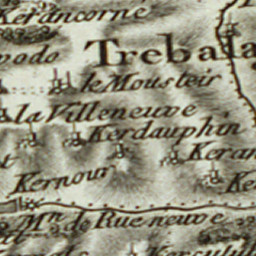 Kerancorne
Trebala
le Mousteir
la Villeneuve
Kerdauphin
Keran
Kernour
Ke
Mⁿ de Rueneuve